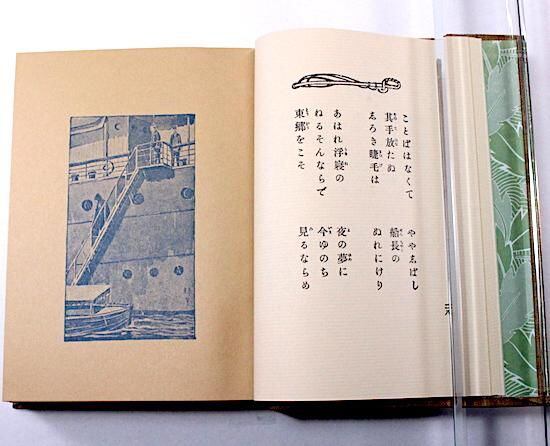 ことばはなくて　ややしばし
其手放たぬ　船長の
しろき睫毛は　ぬれにけり
あはれ浮寝の　夜の夢に
ねるそんならで　今ゆのち
東郷をこそ　見るならめ